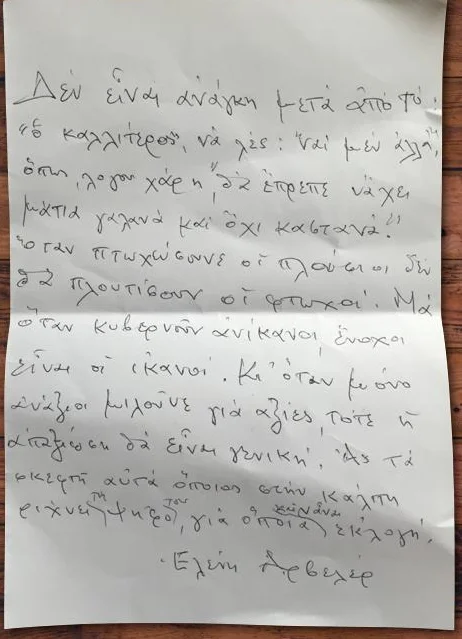 Δὲν εἶναι ἀνάγκη μετὰ ἀπὸ τό:
"ὁ καλλίτερος", νὰ λές: ναὶ μὲν ἀλλὰ,
ὅπως, λόγου χάρη, "θὰ ἔπρεπε νἄχει
μάτια γαλανὰ καὶ ὄχι καστανά."
Ὅταν πτωχεύσουνε οἱ πλούσιοι δὲν
θὰ πλουτίσουν οἱ φτωχοί. Μὰ
ὅταν κυβερνοῦν ἀνίκανοι, ἔνοχοι
εἶναι οἱ ἱκανοί. Κι' ὅταν μόνο
ἀνάξιοι μιλοῦνε γιὰ ἀξίες, τότε ἡ
ἀπαξίωση θὰ εἶναι γενική. Ἂς τὰ
σκεφτῆ αὐτὰ ὅποιος στὴν κάλπη
ρίχνει τὴ ψῆφο του, γιὰ ὅποια κἂν νἆναι ἐκλογή.
Ἑλένη Ἀρβελέρ